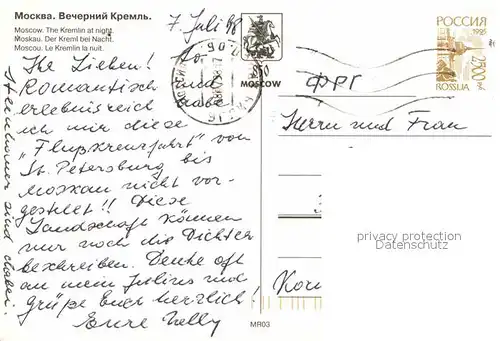 Москва. Вечерний Кремль.
Moscow. The Kremlin at night.
Moskau. Der Kreml bei Nacht.
Moscou. Le Kremlin la nuit.
7. Juli 98
Ihr Lieben! So
Romantisch und
erlebnisreich habe
ich mir diese
"Flußkreuzfahrt" von
St. Petersburg bis
Moskau nicht vor-
gestellt!! Diese
Landschaft können
nur noch die Dichter
beschreiben. Denke oft
an mein Julius und
grüße Euch herzlich!
Eure
sind dabei.
850
MOSCOW
РОССИЯ
1995
2500
ROSSIJA
ФРГ
Herrn und Frau
privacy protection
Datenschutz
MR03